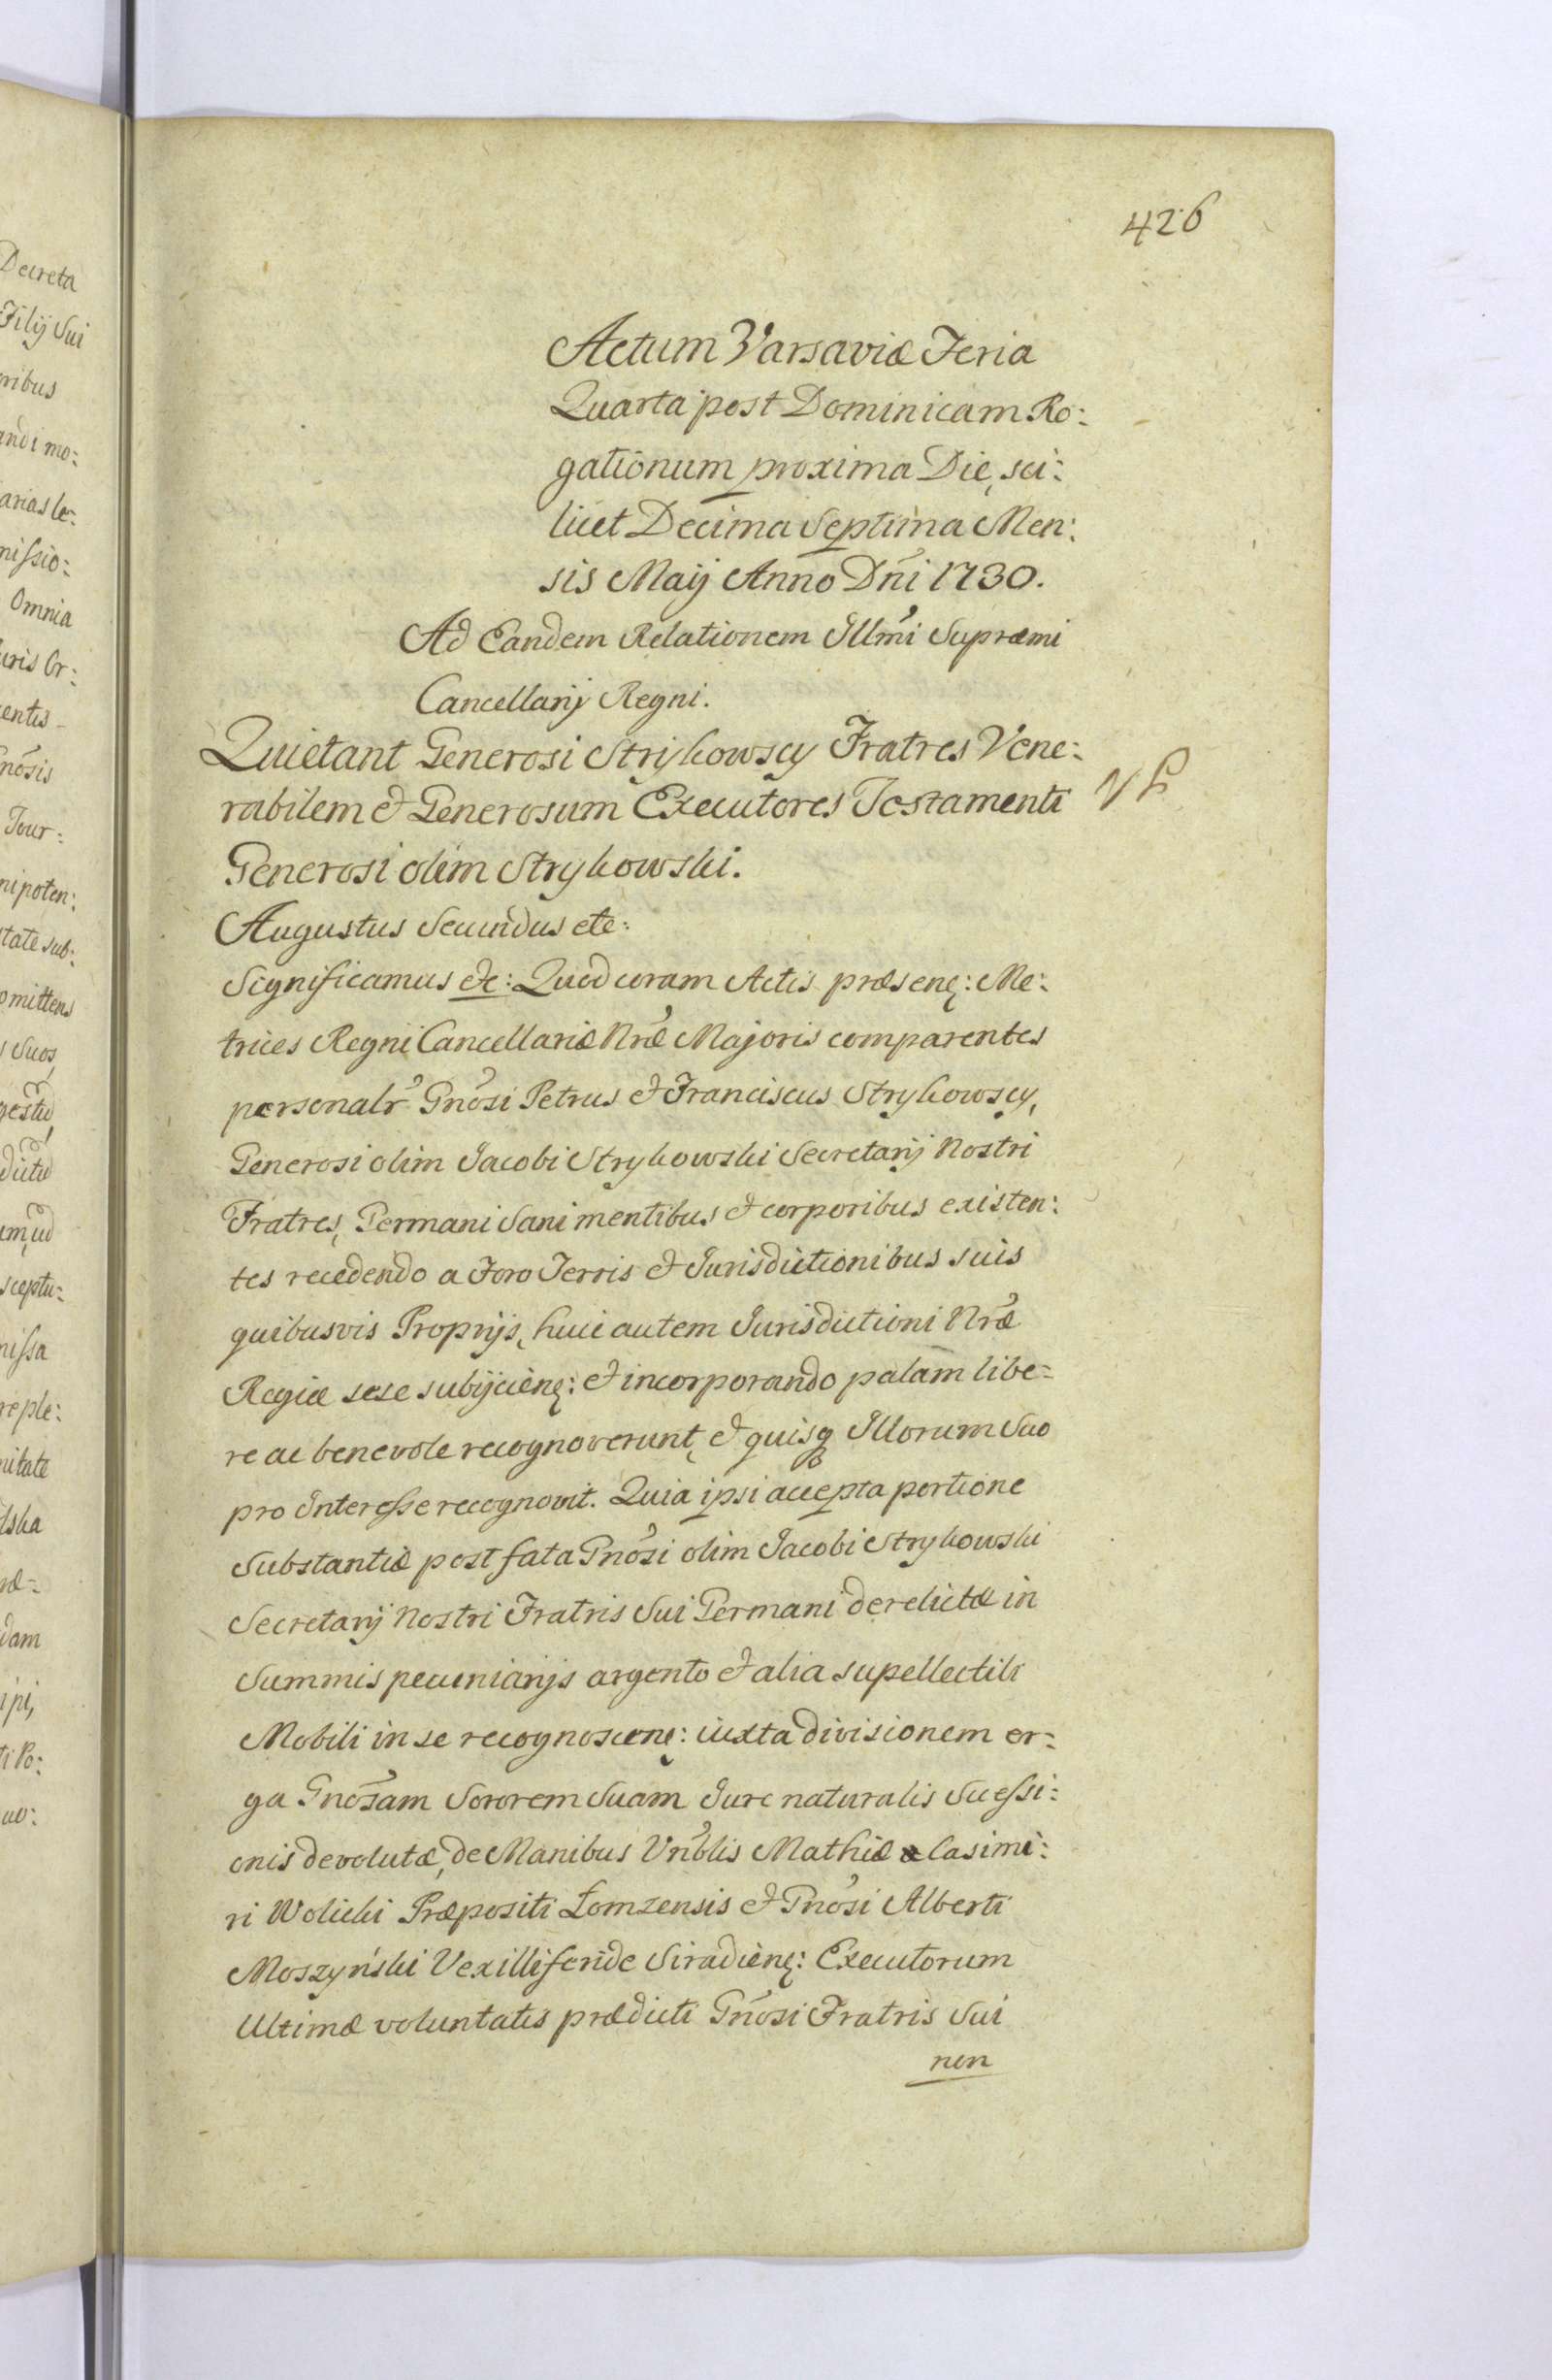 Decreta
Filij Sui
oribus
andi mo:
arias le:
missio:
Omnia
uris Or:
centis
nősis
Tour:
nipoten:
tate sub:
omittens
Suos
gestu
dictu
sceptu:
missa
reple:
nitate
dam
ipi,
ti Po:
uo:
426
Actum Varsaviæ Feria
Quarta post Dominicam Ro:
gationum proxima Die, sci:
licet Decima Septima Men:
sis Maij Anno Dni 1730.
Ad Eandem Relationem Illmi Supræmi
Cancellarij Regni.
Quietant Generosi Strykowscy Fratres Vene:
rabilem et Generosum Executores Testamenti
Generosi olim Strykowski.
Augustus Secundus etc:
Significamus etc: Quod coram Actis præsenţ: Me:
trices Regni Cancellariæ Nræ Majoris comparentes
personalr Gnosi Petrus et Franciscus Strykowscy,
Generosi olim Jacobi Strykowski Secretarij Nostri
Fratres, Germani Sani mentibus et corporibus existen:
tes recedendo a Foro Terris et Jurisdictionibus suis
quibusvis Proprijs, huic autem Jurisdictioni Nræ
Regiæ sese subijcienţ: et incorporando palam libe:
re ac benevole recognoverunt, et quisq Illorum Suo
pro Interesse recognovit. Quia ipsi accepta portione
Substantiæ post fata Gnosi olim Jacobi Strykowski
Secretarij Nostri Fratris Sui Germani derelictæ in
Summis pecuniarijs argento et alia supellectili
Mobili in se recognoscenţ: iuxta divisionem er:
ga Gnosam Sororem Suam Jure naturalis Sucessi:
onis devolutæ, de Manibus Vnblis Mathiæ Casimi:
ri Wolicki Præpositi Łomzensis et Gnosi Alberti
Moszyński Vexilliferide Siradienţ: Executorum
Ultimæ voluntatis prædicti Gnosi Fratris Sui
non